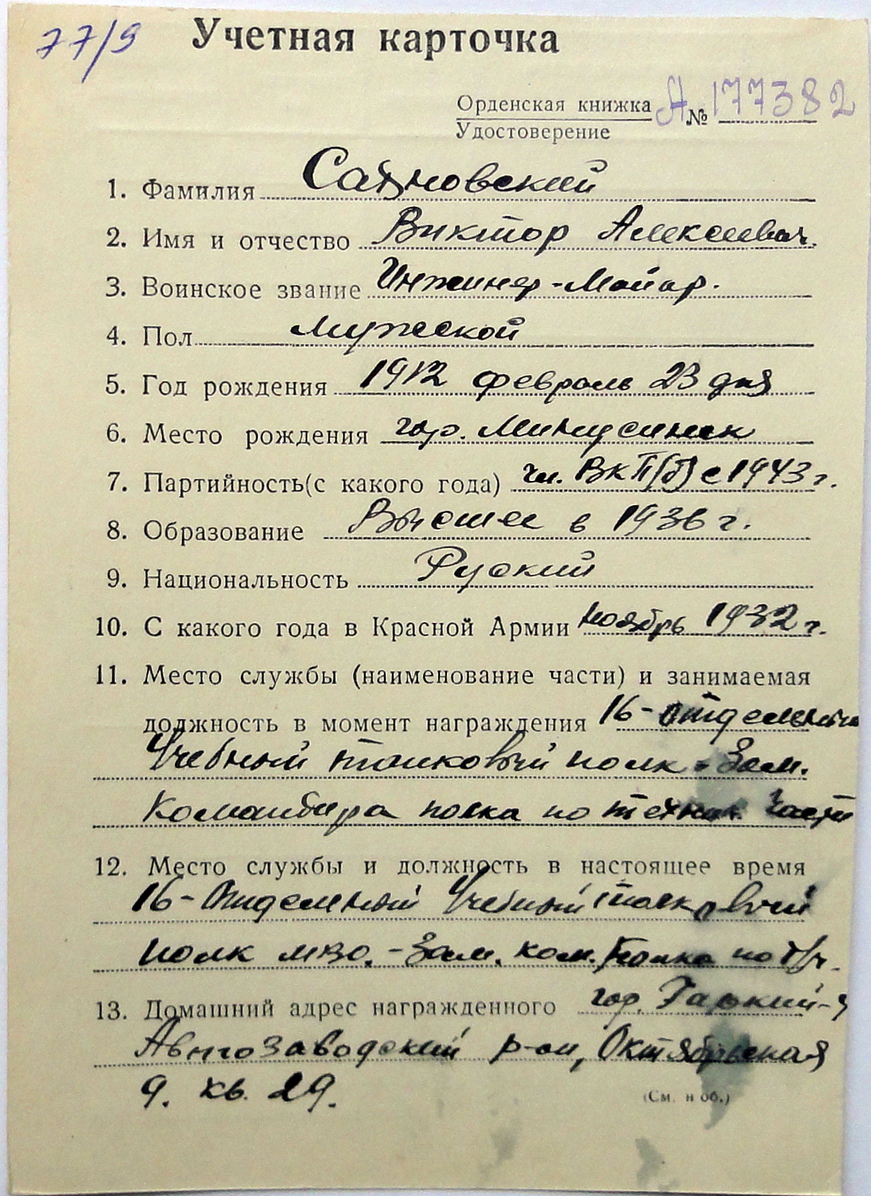 77/9
Учетная карточка
Орденская книжка А № 177382
Удостоверение
1. Фамилия
2. Имя и отчество Виктор Алексеевич.
3. Воинское звание Инжинер-Майор.
4. Пол мужской
5. Год рождения 1912 февраль 23 дня
6. Место рождения гор. Минусинск
7. Партийность(с какого года) чл. ВКП(б) с 1943 г.
8. Образование Высшее в 1936 г.
9. Национальность Руский
10. С какого года в Красной Армии Ноябрь 1932 г.
11. Место службы (наименование части) и занимаемая
должность в момент награждения 16-отдельный
Учебный танковый полк - Зам.
Командира полка по технич. части
12. Место службы и должность в настоящее время
16-Отдельный Учебный танковый
полк МВО. - Зам. ком. полка по т/ч.
13. Домашний адрес награжденного гор. Горький-9
Автозаводский р-он, Октябрьская
9. кв. 29.
(См. н об.)